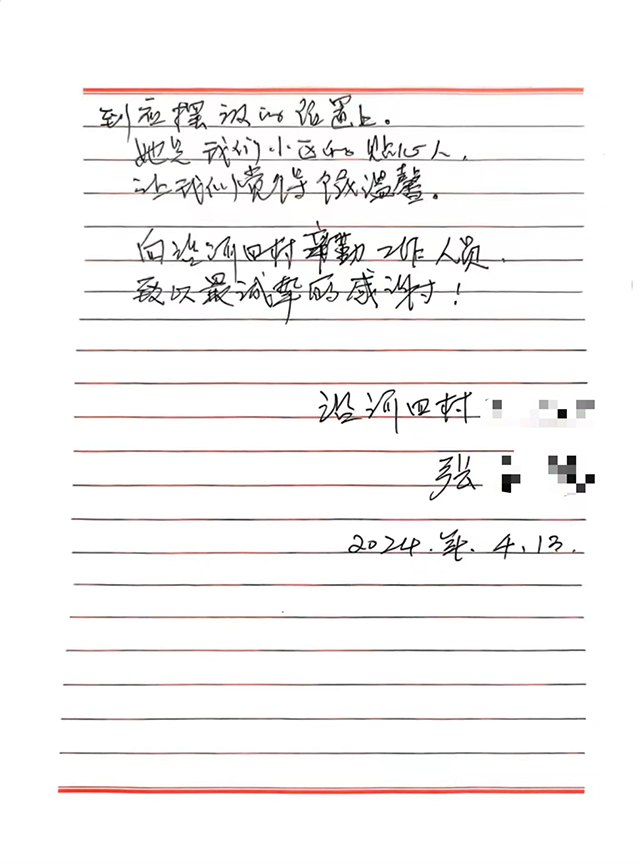 到应摆设的位置上。
她是我们小区的贴心人,
让我们觉得很温馨。
向沿河四村辛勤工作人员,
致以最诚挚的感谢!
沿河四村
张
2024.年.4.13.